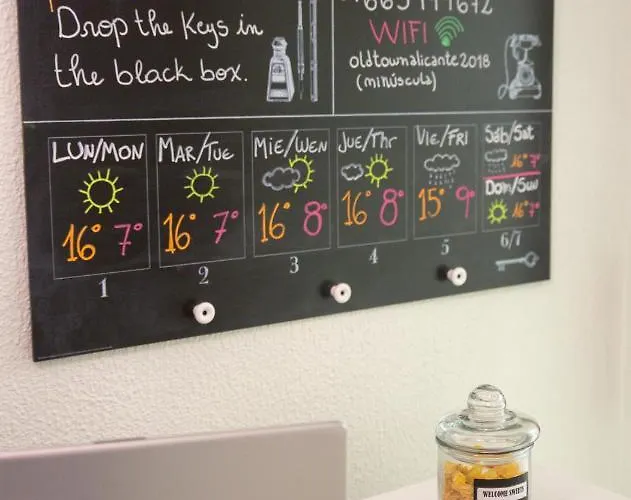 Drop the Keys in
the black box.
WIFI
oldtownalicante2018
(minúscula)
LUN/MON
16° 7°
1
MAR/TUE
16° 7°
2
MIE/WEN
16° 8°
3
JUE/Thr
16° 8°
4
VIE/FRI
15° 9°
5
Sáb/Sat
16° 7°
Dom/Sun
16° 7°
6/7
WELCOME SWEETS